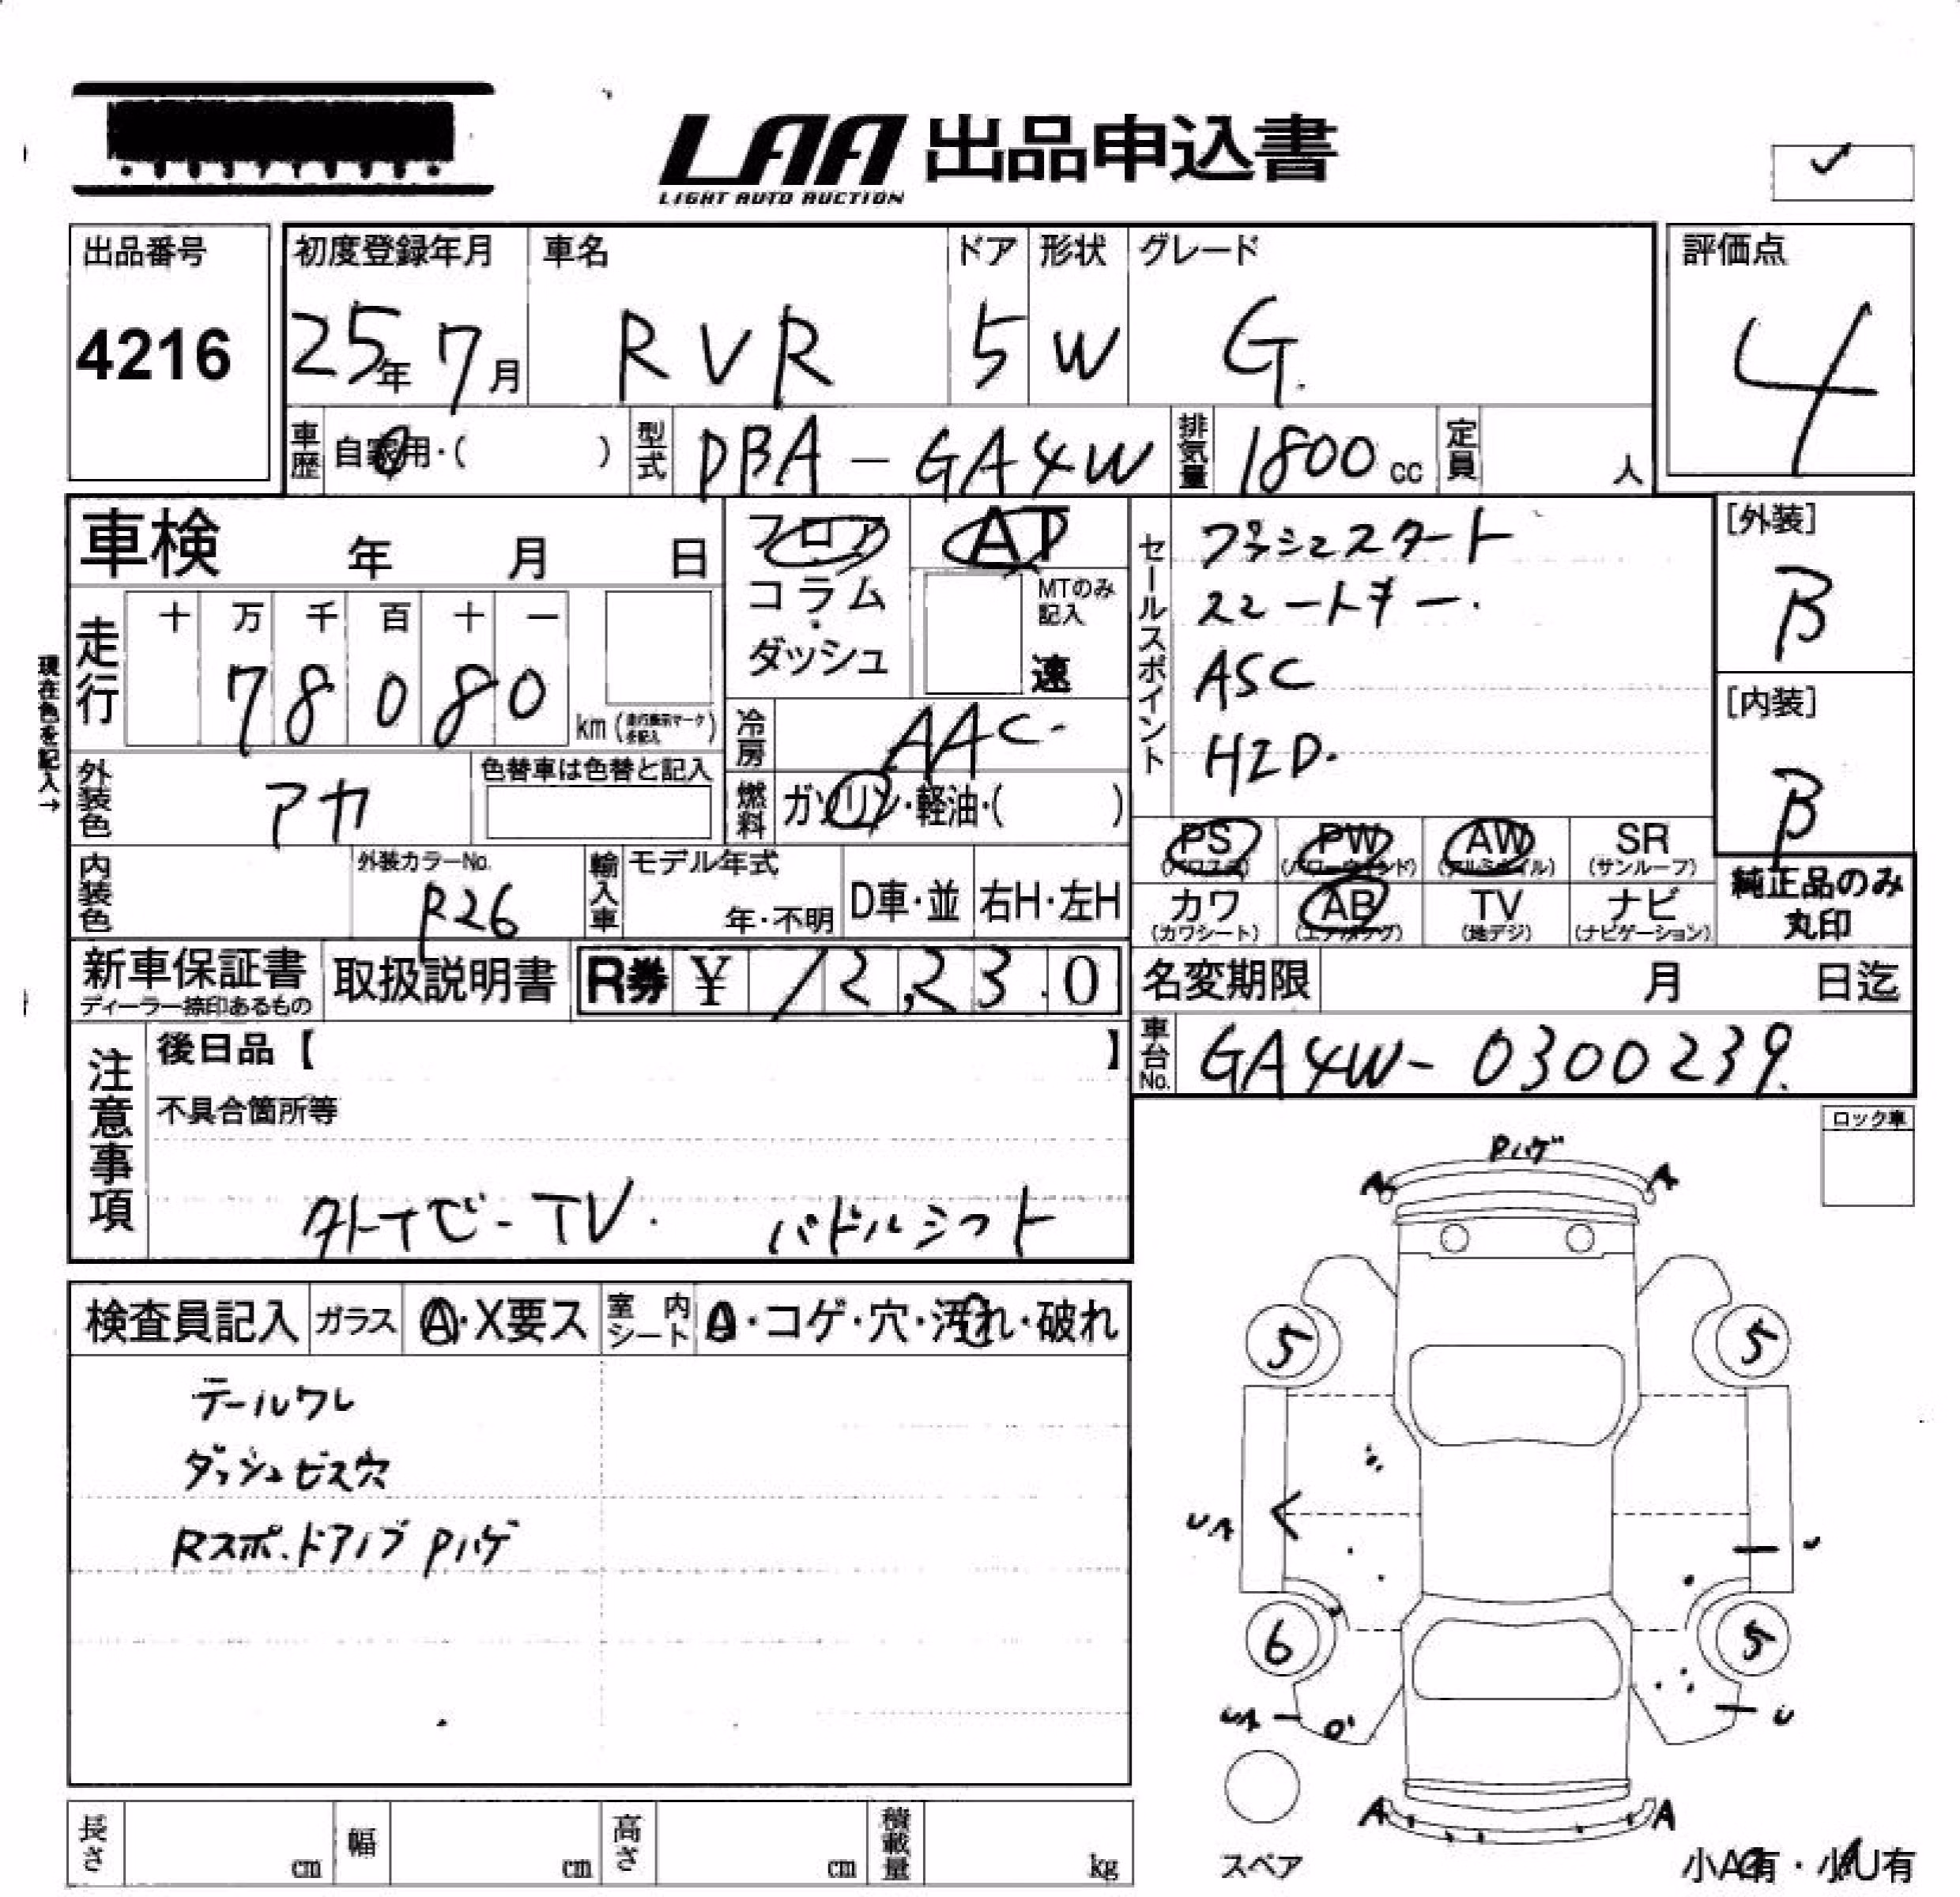 LAA 出品申込書
LIGHT AUTO AUCTION
出品番号
4216
初度登録年月 車名 ドア 形状 グレード
25年 7月 RVR 5 W G.
評価点
4
車歴 自家用・( ) 型式 DBA-GA4W 排気量 1800cc 定員 人
車検 年 月 日
フロア・コラム・ダッシュ
AT
MTのみ記入
速
セールスポイント
プッシュスタート
スマートキー.
ASC
HID.
[外装]
B
[内装]
B
現在色を記入→
走行 十 万 千 百 十 一
7 8 0 8 0 km
冷房 AAC
外装色 アカ 色替車は色替と記入
燃料 ガソリン・軽油・( )
内装色 外装カラーNo. P26
輸入車 モデル年式 年・不明 D車・並 右H・左H
PS PW AW SR
(サンルーフ)
カワ AB TV ナビ
(カワシート) (エアバッグ) (地デジ) (ナビゲーション)
純正品のみ丸印
新車保証書 取扱説明書 R券 ¥ 12,230
ディーラー捺印あるもの
名変期限 月 日迄
車台No. GA4W-0300239.
注意事項
後日品【 】
不具合箇所等
外ナビ-TV. パドルシフト
ロック車
検査員記入 ガラス A・X要ス 室内シート A・コゲ・穴・汚れ・破れ
テールワレ
ダッシュビス穴
Rスポ.ドアノブ Pハゲ
Pハゲ
A A
5 5
UA U
6 5
UA U
A A
スペア
長さ cm 幅 cm 高さ cm 積載量 kg
小A有・小U有